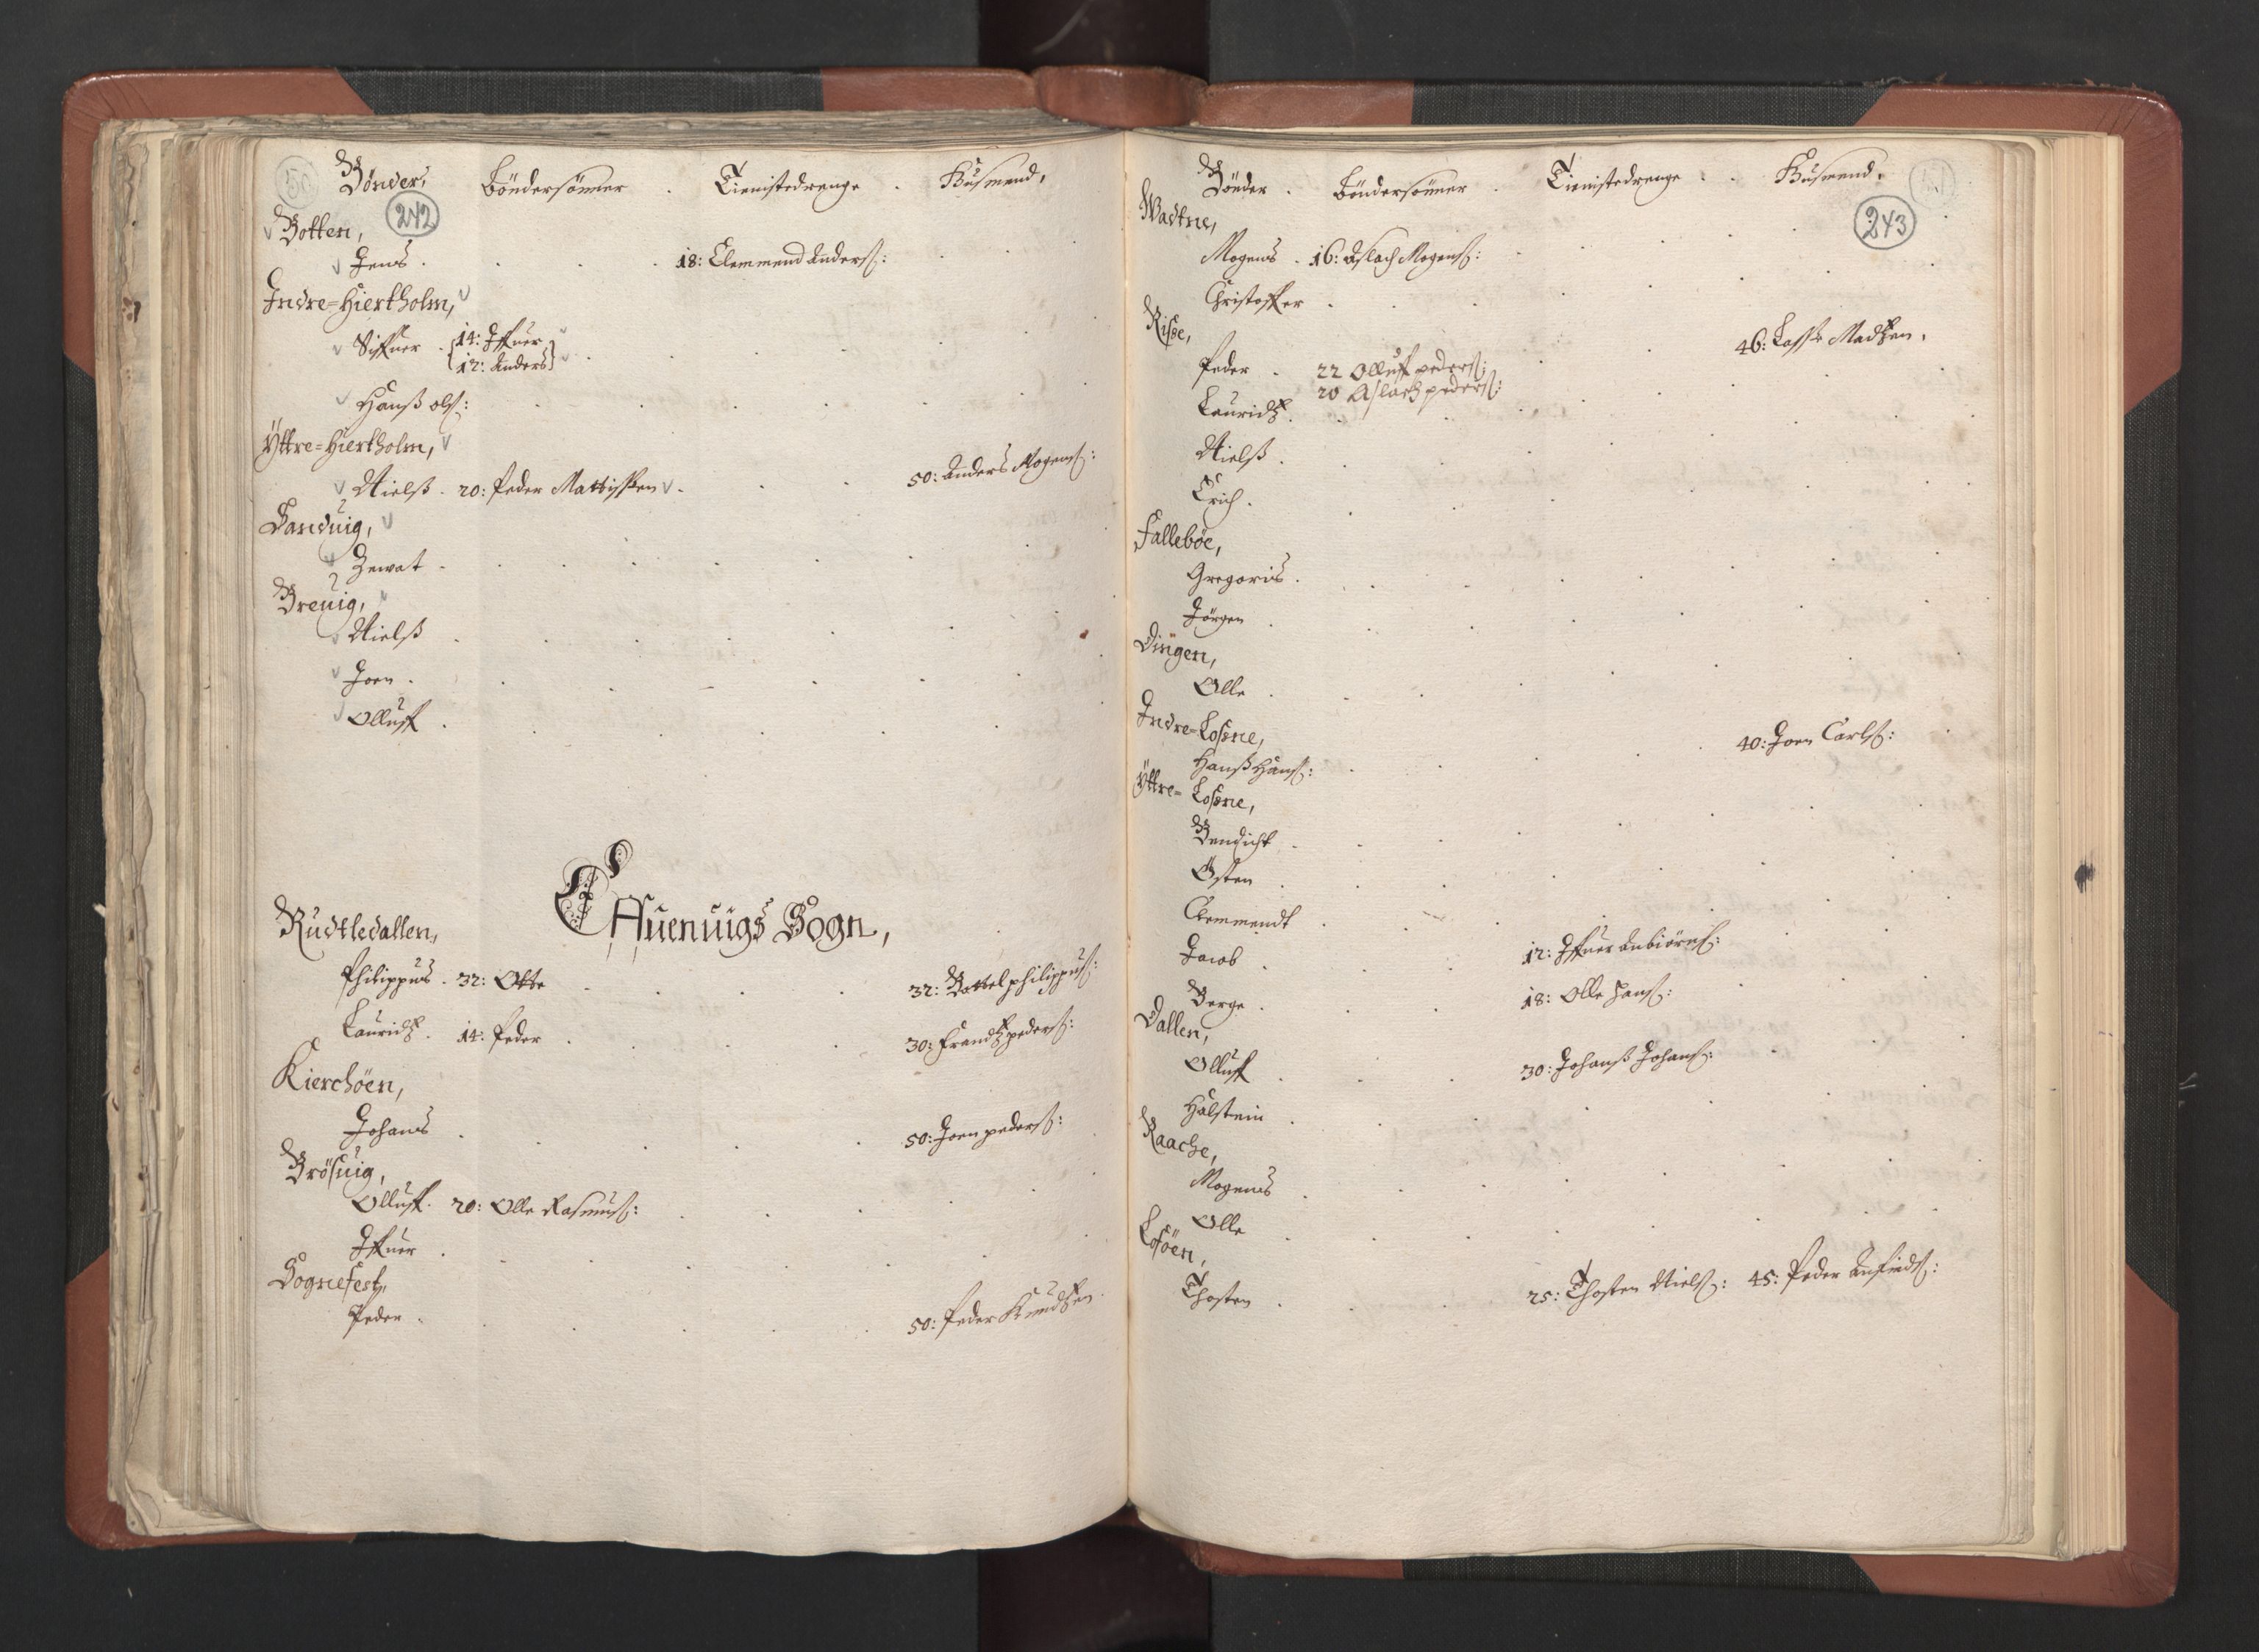 Bönder, Böndersönner . Tienistedrenge . Husmend,
242
Botten,
Jens . 18: Clemmend Anders:
Indre=Hiertholm,
Siffuer . 14: Iffuer
12: Anders
Hanß Ols:
Yttre=Hiertholm,
Nielß . 20: Peder Mattißen . 50: Anders Mogens:
Sanduig,
Zewat .
Breuig,
Nielß
Joen .
Olluff .
Effuenuigs Sogn,
Rudtledallen,
Philippus . 32: Otte 32: Bottel philippus:
Lauridtz . 14: Peder 30: Frandtz peders:
Kierchöen,
Johans 50: Joen peders:
Brösuig,
Olluff . 20: Olle Rasmus:
Iffuer .
Sognefest,
Peder . 50: Peder Knudtzen
Bönder . Böndersönner . Tienistedrenge . Husmend,
243
Wadtne,
Mogens . 16: Aslach Mogens:
Christoffer .
Riße,
Peder . 22 Olluff peders: 46: Lasse Madtzen,
20 Aslach peders:
Lauridtz .
Nielß .
Erich .
Fallebøe,
Gregorius .
Jörgen .
Dingen,
Olle .
Indre=Loßne,
Hanß Hans: 40: Joen Carls:
Yttre=Loßne,
Bendicht .
Østen .
Clemmendt .
Jacob . 12: Iffuer Anbiörns:
Berge . 18: Olle Hans:
Dallen,
Olluff . 30: Johanß Johans:
Halstein .
Raache,
Mogens .
Olle .
Losöen,
Thosten . 25: Thosten Niels: 45: Peder Anfinds: